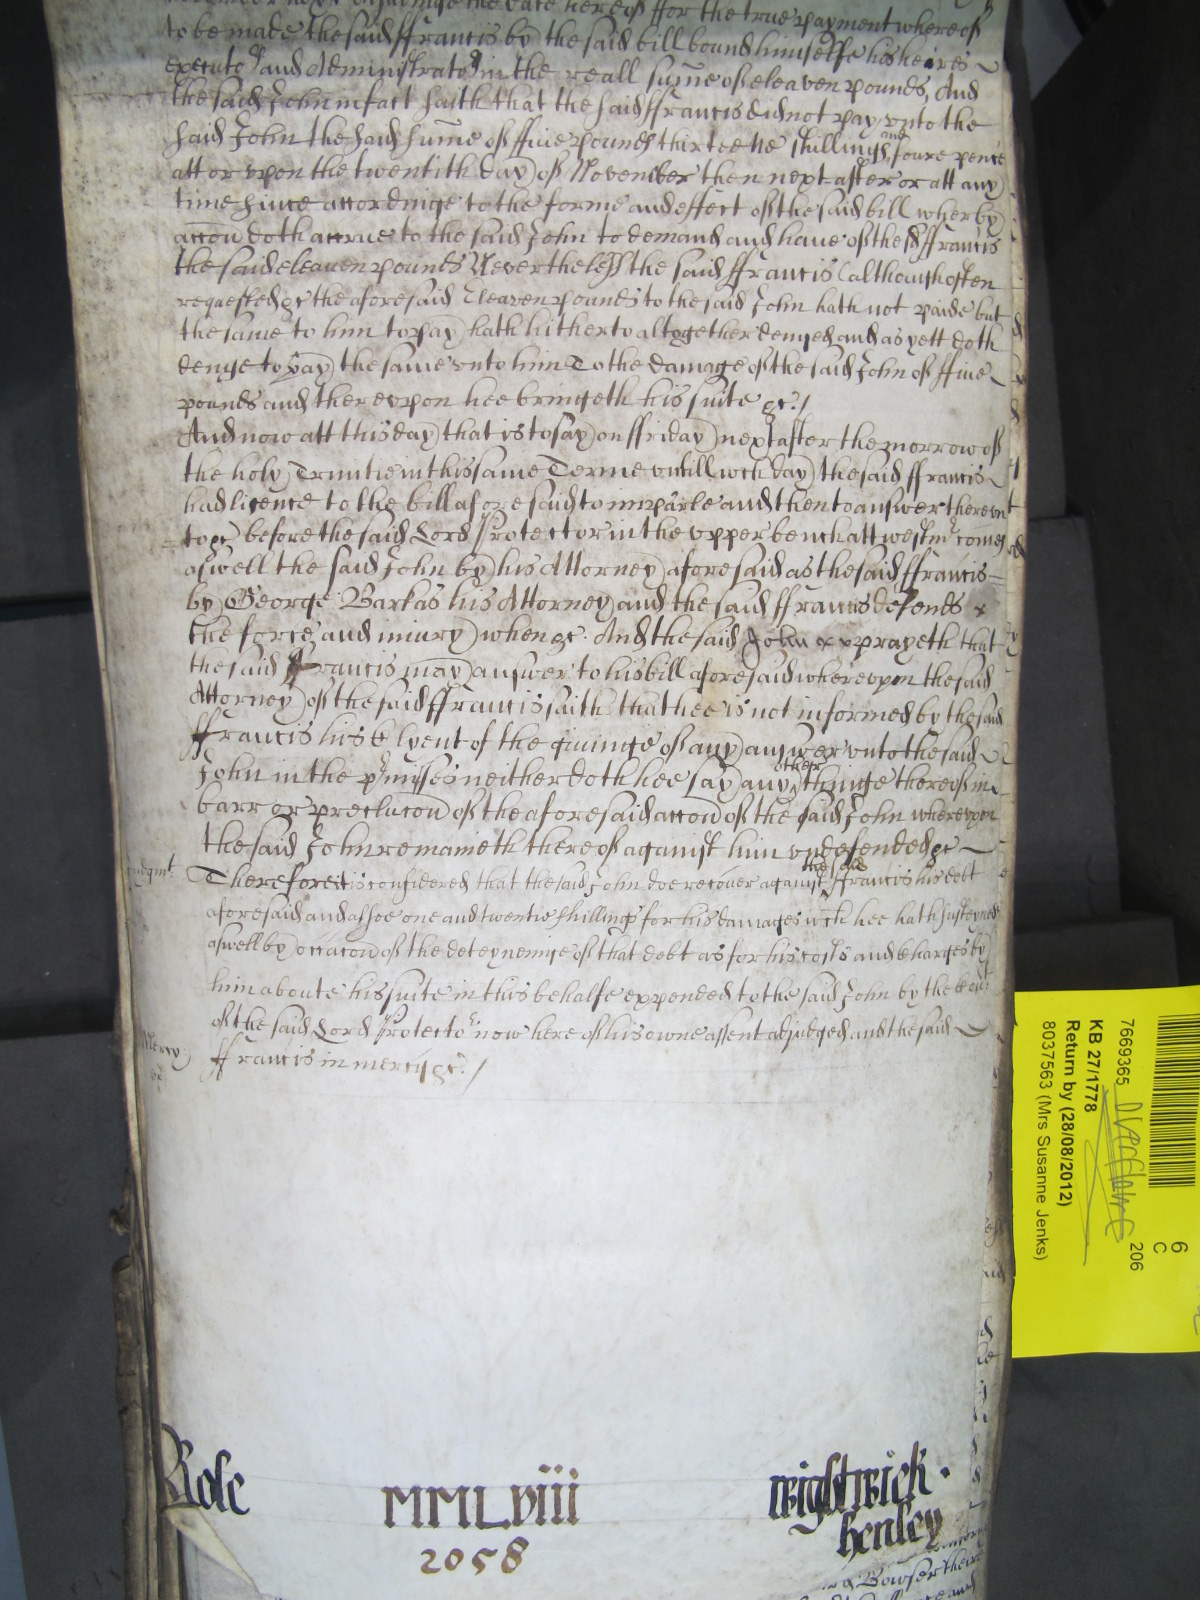 next ensuinge the date hereof ffor the true payment whereof
to be made the said ffrancis by the said bill bound himselfe his heires
executors and Administrators in the reall summe of eleaven pounds, And
the said John in fact saith that the said ffrancis did not pay vnto the
said John the said summe of ffive pounds thirteene shillings and foure pence
att or vpon the twentith day of November then next after or att any
time since accordinge to the forme and effect of the said bill wherby
accon doth accrue to the said John to demand and have of the sd ffrancis
the said eleaven pounds Neverthelesse the said ffrancis (although often
requested &c the aforesaid Eleaven pounds to the said John hath not paide but
the same to him to pay hath hitherto altogether denyed and as yett doth
denye to pay the same vnto him To the damage of the said John of ffive
pounds and therevpon hee bringeth his suite &c /
And now att this day that is to say on ffriday next after the morrow of
the holy Trinitie in this same Terme vntill wch day the said ffrancis
had licence to the bill aforesaid to imparle and then to answer therevn
to &c before the said Lord Protector in the vpper bench att westmr comes
aswell the said John by his Attorney aforesaid as the said ffrancis
by George Barkas his Attorney and the said ffrancis defends
the force and iniury when &c. And the said John prayeth that
the said ffrancis may answer to his bill aforesaid wherevpon the said
Attorney of the said ffrancis saith that hee is not informed by the said
ffrancis his Clyent of the givinge of any answer vnto the said
John in the prmisses neither doth hee say any other thinge thereof in
barr or preclucon of the aforesaid accon of the said John wherevpon
the said John remaineth thereof against him vndefended &c
Judgmt. Therefore it is considered that the said John doe recover against the said ffrancis his debt
aforesaid and alsoe one and twentie shillings for his damages wch hee hath susteyned
aswell by occacon of the deteyneinge of that debt as for his costs and Charges by
him aboute his suite in this behalfe expended to the said John by the Court
of the said Lord Protector now here of his owne assent adjudged and the said
Mercy ffrancis in mercy &c. /
Role MMLviii wightwick.
2058 henley
Bowser
7669365
KB 27/1778
Return by (28/08/2012)
8037563 (Mrs Susanne Jenks)
206
6
C